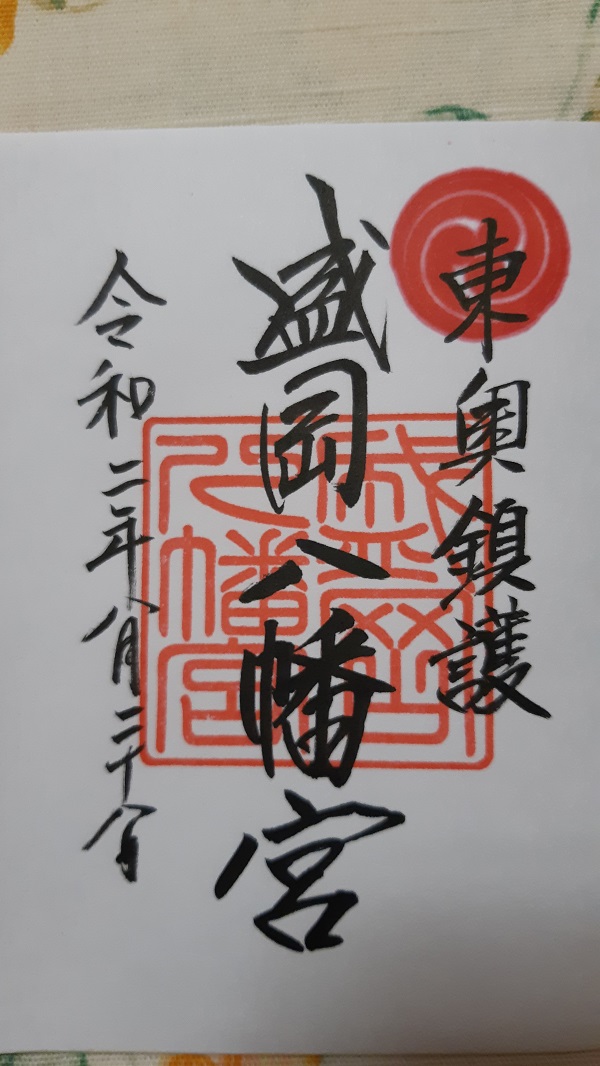 東奥鎮護
盛岡八幡宮
令和二年八月二十八日
盛岡
八幡宮